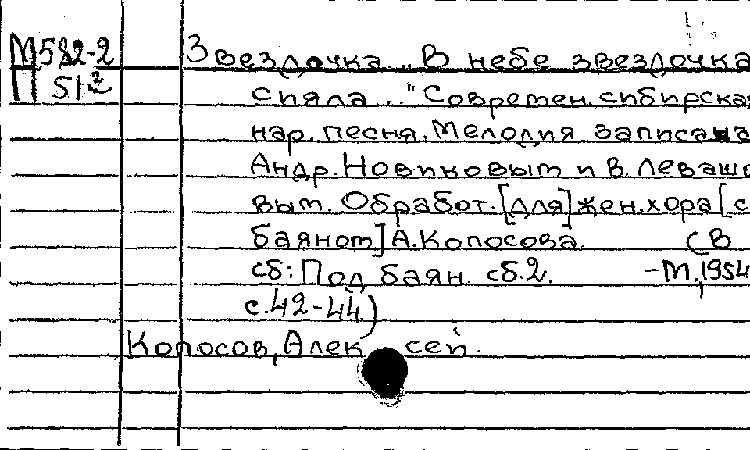 М582-2
П 51-2
Звездочка „В небе звездочка
сияла.." Современ. сибирская
нар. песня. Мелодия записана
Андр. Новиковым и В. Левашо
вым. Обработ. [для] жен. хора [с
баяном] А. Колосова. (В
сб: Под баян. сб. 2. -М., 1954
с. 42-44)
Колосов, Алексей.